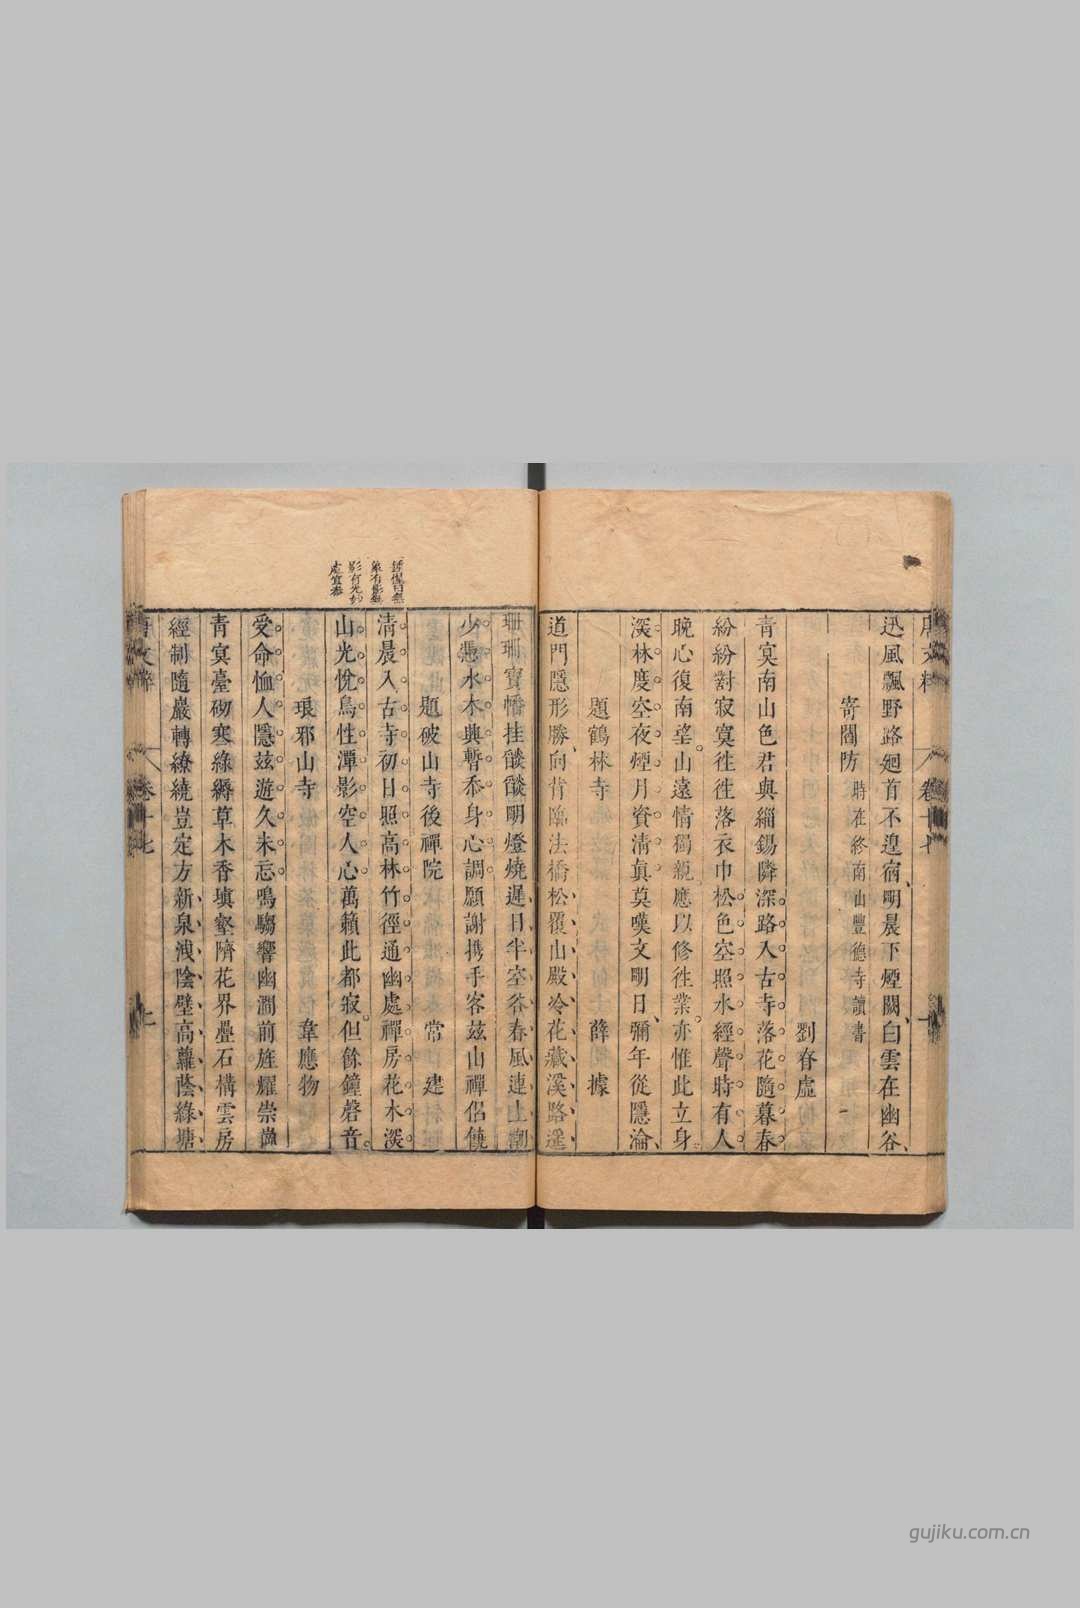 迅風飄野路廻首不遑宿明晨下煙闕白雲在幽谷
寄閻防 時在終南山豐德寺讀書
劉眘虛
青冥南山色君與緇錫隣深路入古寺落花隨暮春
紛紛對寂寞徃徃落衣巾松色空照水經聲時有人
晚心復南望山遠情獨親應以修徃業亦惟此立身
深林度空夜煙月資清真莫嘆文明日彌年從隱淪
題鶴林寺 薛據
道門隱形勝向背臨法橋松覆山殿冷花藏溪路遥
珊珊寶幡挂𦦨𦦨明燈燒遲日半空谷春風連上潮
少憑水木興暫忝身心調願謝携手客茲山禪侶饒
題破山寺後禪院 常建
清晨入古寺初日照高林竹徑通幽處禪房花木深
山光悅鳥性潭影空人心萬籟此都寂但餘鐘磬音
琅邪山寺 韋應物
受命恤人隱茲遊久未忘鳴騶響幽澗前旌耀崇崗
青冥臺砌寒綠縟草木香塡壑隮花界疊石構雲房
經制隨巖轉繚繞豈定方新泉洩陰壁高蘿蔭綠塘
唐文粹 卷十七 上
gujiku.com.cn